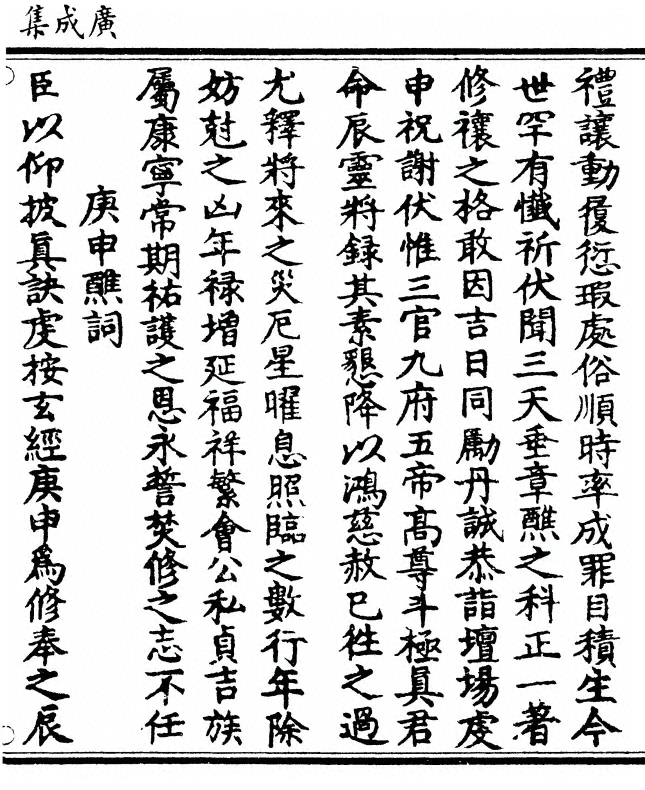 廣成集
禮讓動履愆瑕處俗順時率成罪目積生今
世罕有懺祈伏聞三天垂章醮之科正一著
修禳之格敢因吉日同勵丹誠恭詣壇場虔
申祝謝伏惟三官九府五帝高尊斗極眞君
命辰靈將録其素懇降以鴻慈赦已徃之過
尤釋將來之災厄星曜息照臨之數行年除
妨尅之凶年禄增延福祥繁會公私貞吉族
屬康寧常期祐護之恩永誓焚修之志不任
庚申醮詞
臣以仰披眞訣虔按玄經庚申爲修奉之辰